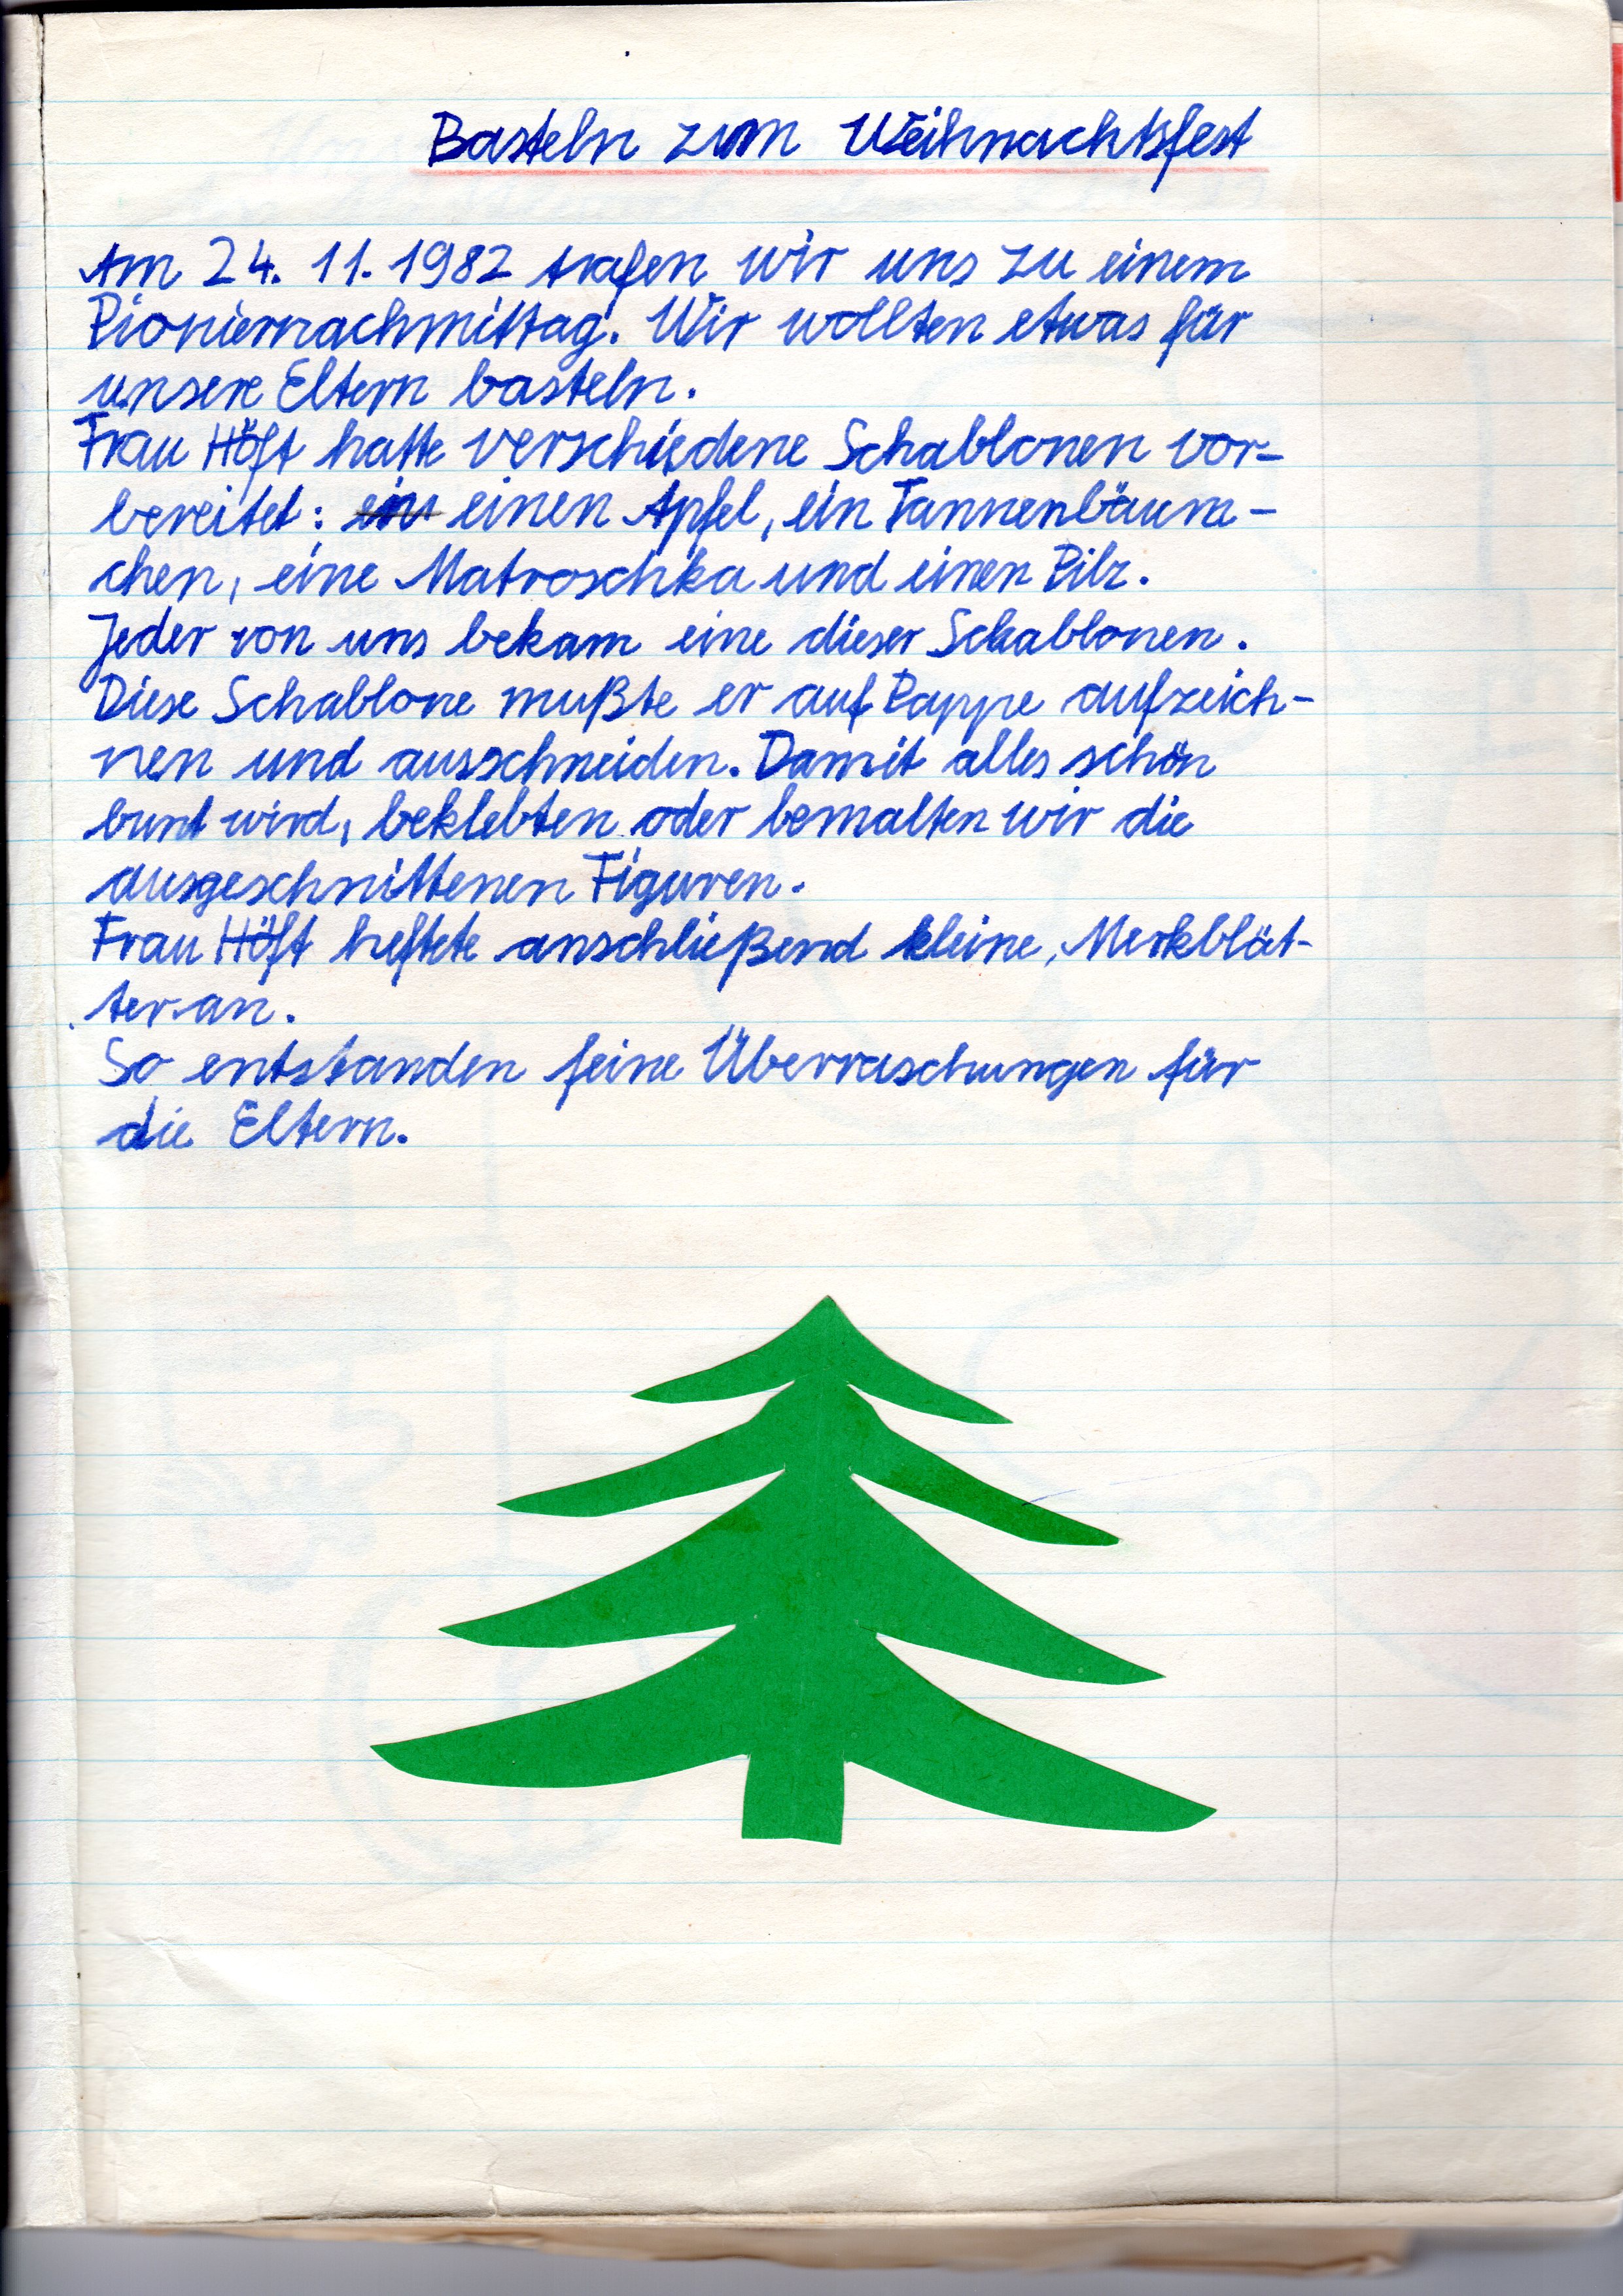 Basteln zum Weihnachtsfest
Am 24. 11. 1982 trafen wir uns zu einem
Pioniernachmittag. Wir wollten etwas für
unsere Eltern basteln.
Frau Höft hatte verschiedene Schablonen vor-
bereitet: ein einen Apfel, ein Tannenbäum-
chen, eine Matroschka und einen Pilz.
Jeder von uns bekam eine dieser Schablonen.
Diese Schablone mußte er auf Pappe aufzeich-
nen und ausschneiden. Damit alles schön
bunt wird, beklebten oder bemalten wir die
ausgeschnittenen Figuren.
Frau Höft heftete anschließend kleine, Merkblät-
ter an.
So entstanden feine Überraschungen für
die Eltern.